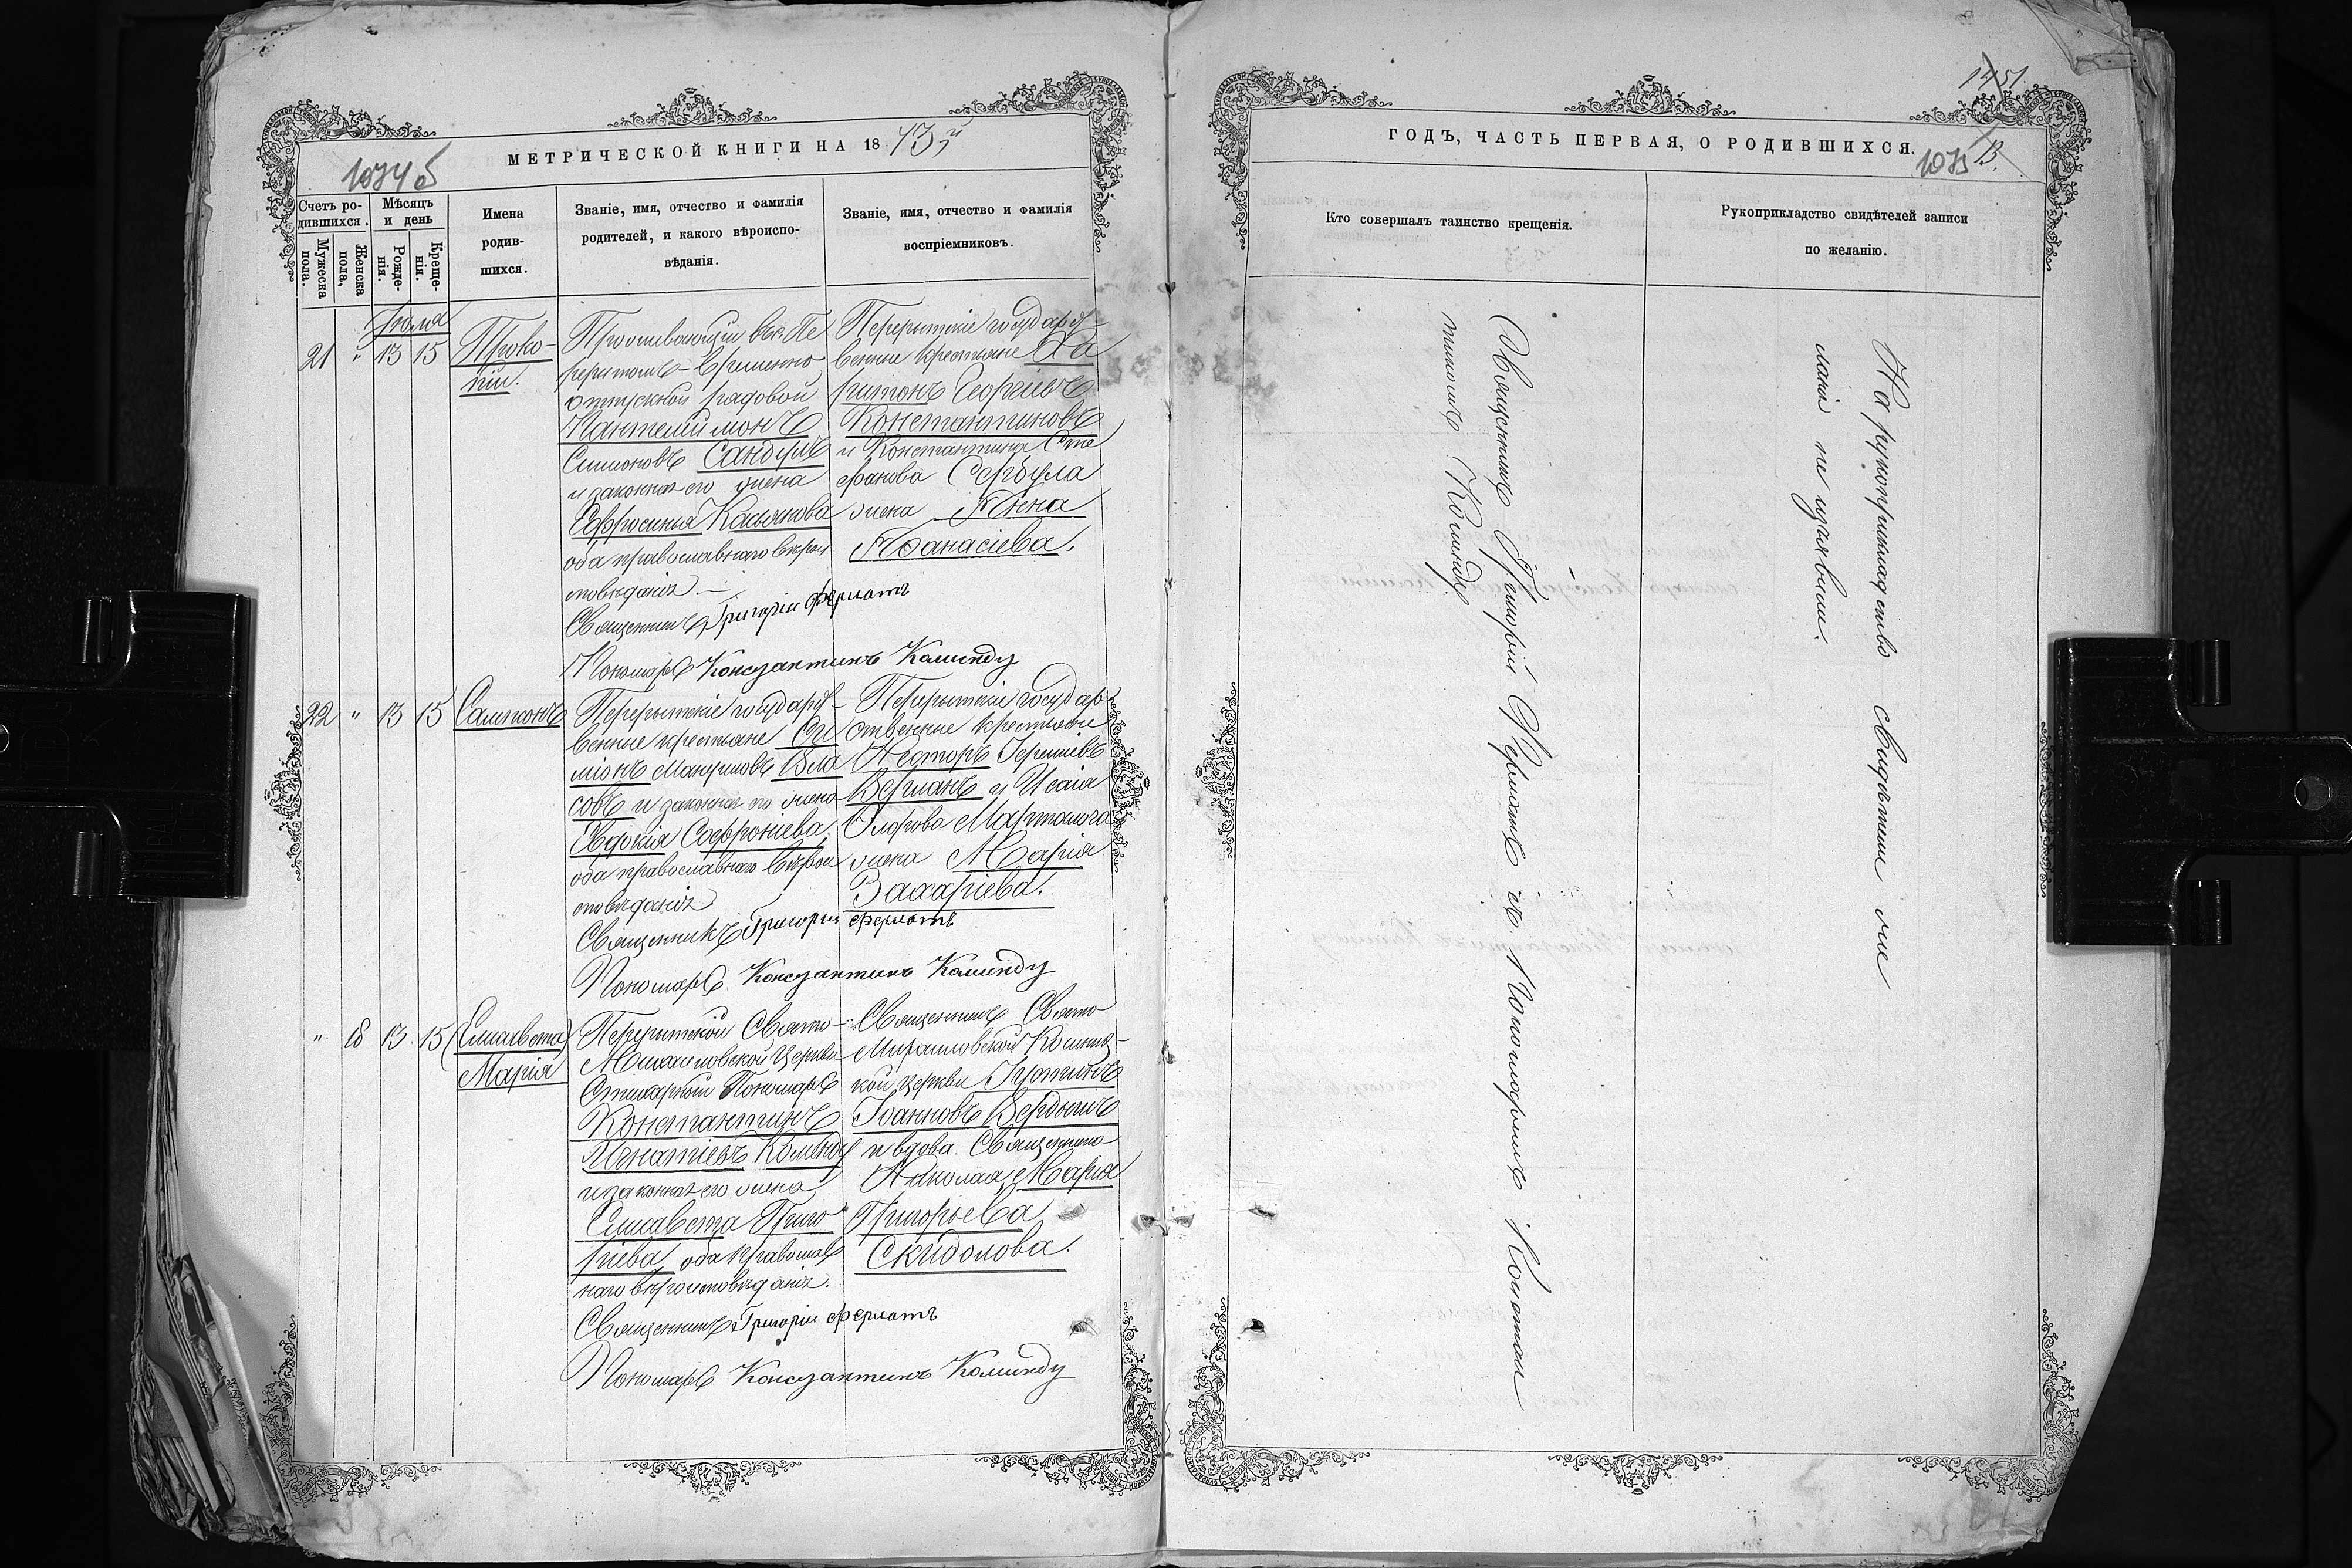 МЕТРИЧЕСКОЙ КНИГИ НА 1873й
1074 б
Счетъ ро-
дившихся.
Мужеска
пола.
Женска
пола,
Мѣсяцъ
и день
Рожде-
нія.
Креще-
нія.
Имена
родив-
шихся.
Званіе, имя, отчество и фамилія
родителей, и какого вѣроиспо-
вѣданія.
Званіе, имя, отчество и фамилія
воспріемниковъ.
Іюля
21 " 13 15
Проко-
пій.
Проживающій въ с. Пе
рерытомъ - временно
отпускной рядовой
Пантелиимонъ
Симіоновъ Сандулъ
и законная его жена
Ефросинья Касьянова
оба православнаго вѣрои
сповѣданія.-
Перерытскіе государст-
венные крестьяне Ха
ритонъ Георгіевъ
Константиновъ
и Константина Сте
фанова Сербула
жена Анна
Аѳанасіева.
Священникъ Григорій Ферматъ
Пономарь Константинъ Коминду
22 " 13 15
Сампсонъ
Перерытскіе государст-
венные крестьяне Си
міонъ Вла
совъ и законная его жена
Евдокія Софроніева.
оба православнаго вѣрои
сповѣданія
Перерытскіе государ-
ственные крестьяне
Несторъ Верланъ и Исаія
жена Марія
Захаріева.
Священникъ Григорій Ферматъ
Пономарь Константинъ Коминду
" 18 13 15
(Елисавета)
Марія
Перерытской Свято-
Михаиловской Церкви
Стихарный Пономарь
Константинъ
Игнатіевъ Коминду
и законная его жена
Елисавета Григо
ріева оба православ
наго вѣроисповѣданія.
Священникъ Свято
Михаиловской
кой церкви Іустинъ
Іоанновъ Вердышъ
и вдова Священника
Николая, Марія
Григорьева
Скидолова.
Священникъ Григорій Ферматъ
Пономарь Константинъ Коминду
1451.
ГОДЪ, ЧАСТЬ ПЕРВАЯ, О РОДИВШИХСЯ.
1075
13.
Кто совершалъ таинство крещенія.
Рукоприкладство свидѣтелей записи
по желанію.
Священникъ Григорій Ферматъ съ Пономаремъ Констан
тиномъ Коминду
На рукоприкладство свидѣтели же
ланія не изъявили.